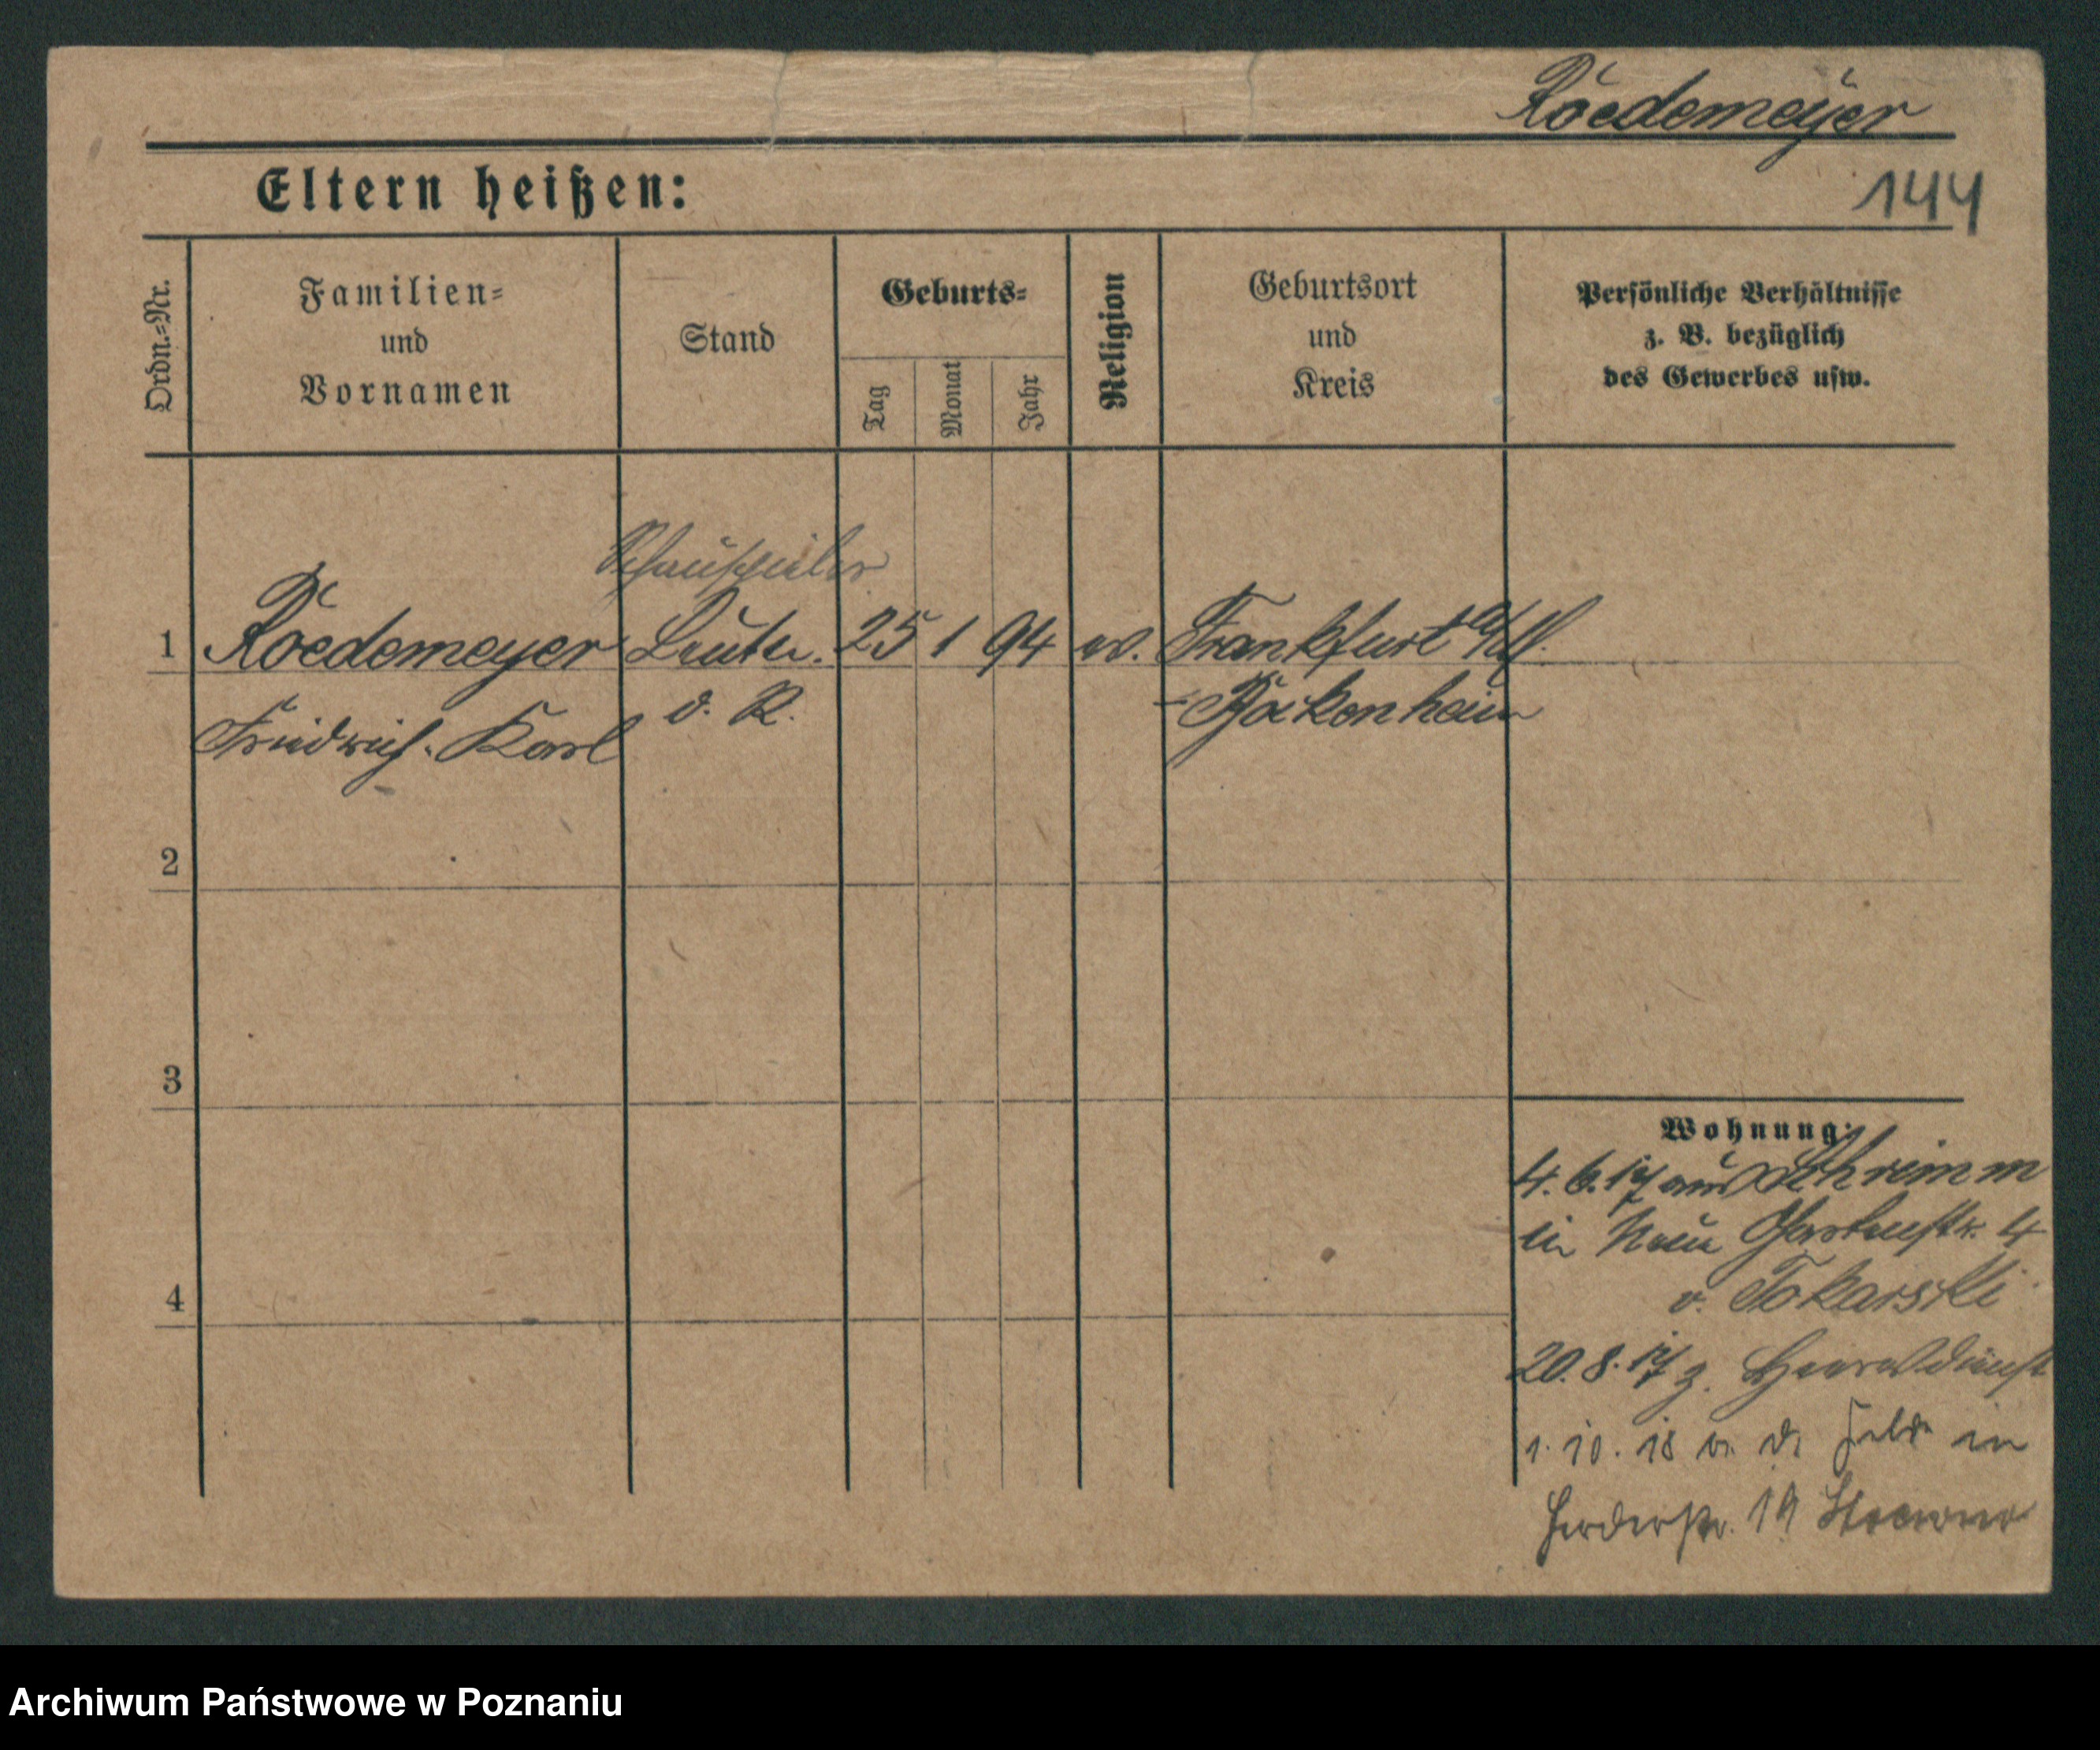 Roedemeyer
Eltern heißen:
144
Ordn.=Nr.
Familien=
und
Vornamen
Stand
Geburts=
Tag
Monat
Jahr
Religion
Geburtsort
und
Kreis
Persönliche Verhältnisse
z. B. bezüglich
des Gewerbes usw.
Schauspieler
1 Roedemeyer Leutn. 25 1 94 ev. Frankfurt a/M.
Friedrich Karl d. R. - Bockenheim
2
3
4
Wohnung:
4. 6. 17 aus Schrimm
in Neue Gartenstr. 4
v. Tokarski
20. 8. 17 z. Heeresdienst
1. 10. 18 v. d. Felde in
Herderstr. 19
Archiwum Państwowe w Poznaniu